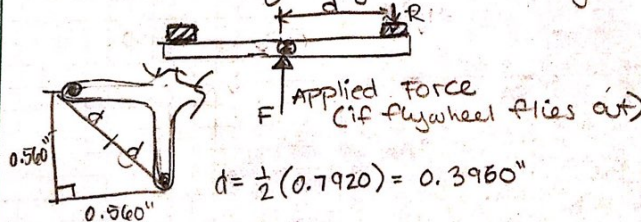 d
R
F
Applied Force
(if flywheel flies out)
0.560"
d
d
d = 1/2 (0.7920) = 0.3960"
0.560"